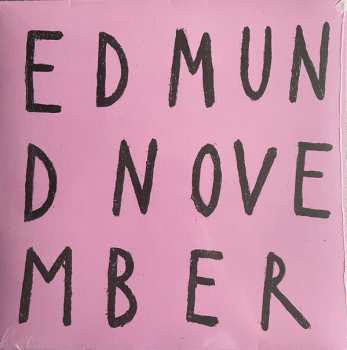 EDMUN
DNOVE
MBER